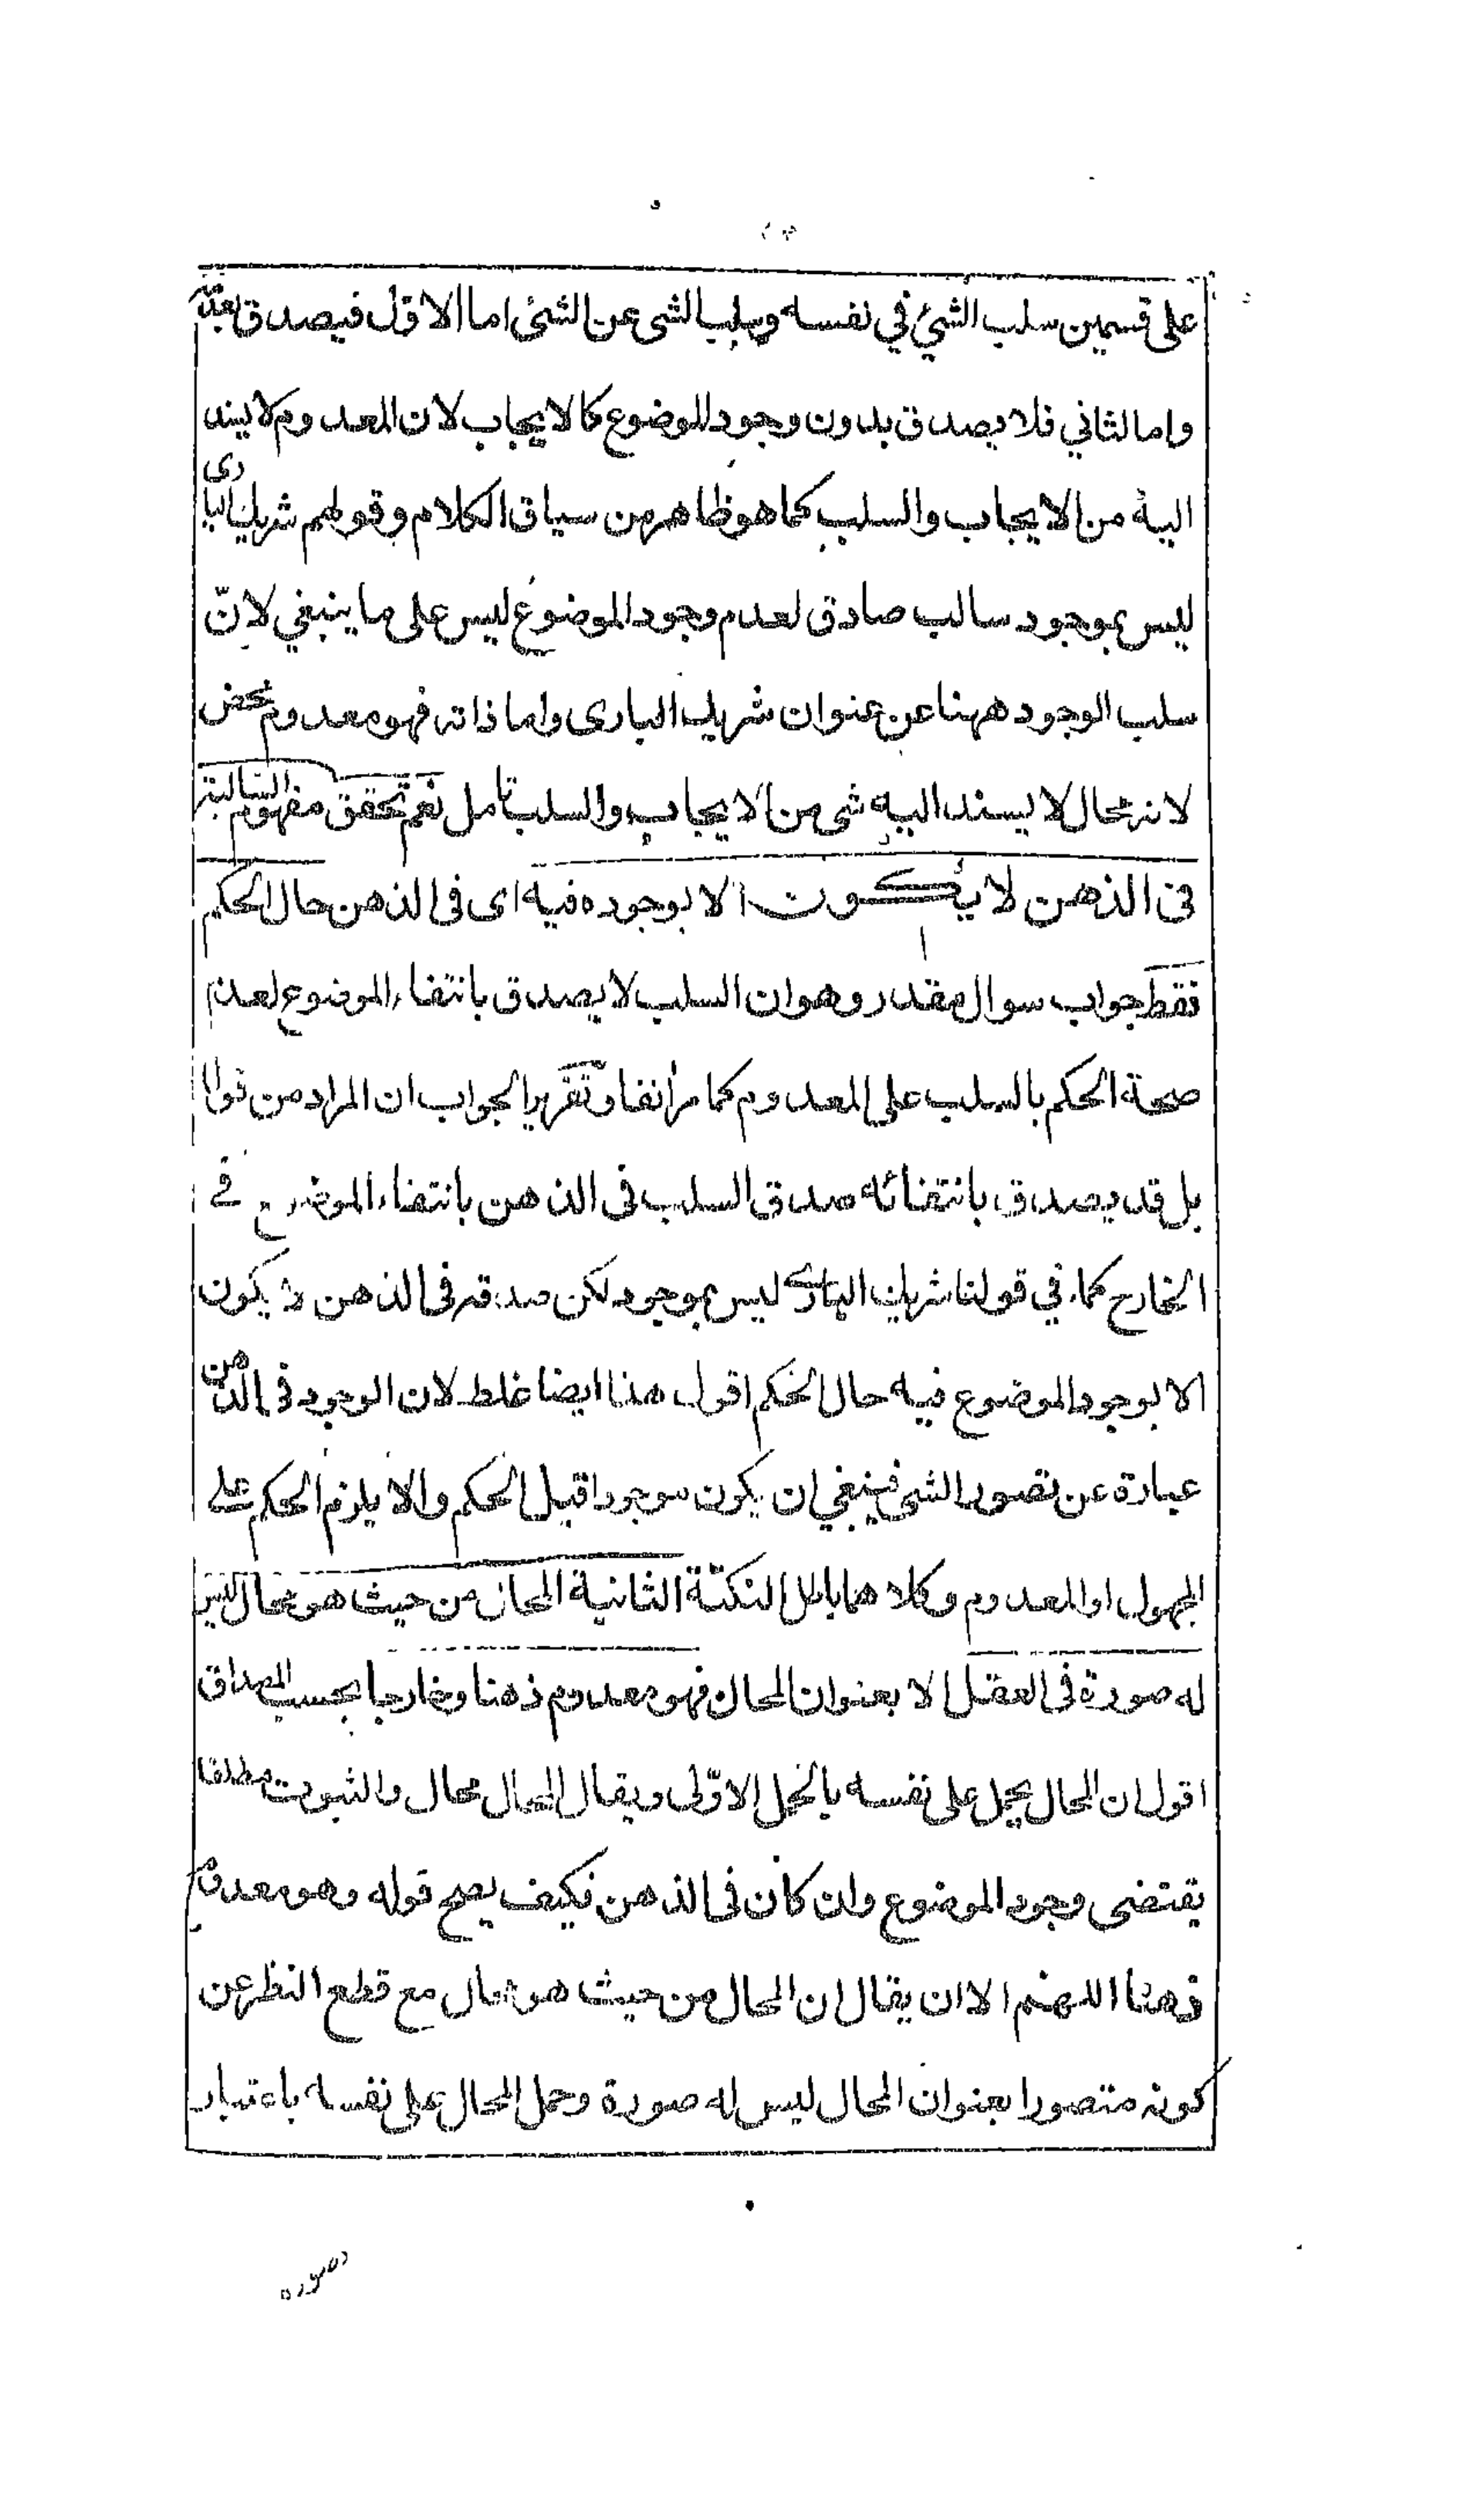 على قسمين سلب الشيئ في نفسه وسلب الشى عن الشئ اما الاول فيصدق بعدمه
واما لثاني فلا يصدق بدون وجود الموضوع كالايجاب لان المعدوم لا يسند
اليه من الايجاب والسلب كما هو ظاهر من سياق الكلام وقولهم شريك البارى
ليس بموجود سالب صادق لعدم وجود الموضوع ليس على ما ينبغي لانّ
سلب الوجود ههنا عن عنوان شريك البارى واما ذاته فهو معدوم محض
لانه محال لا يسند اليه شى من الايجاب والسلب تامل نعم تحقق مفهوم السالبة
فى الذهن لا يكون الا بوجوده فيه اى فى الذهن حال الحكم
فقط جواب سوال مقدر وهو ان السلب لا يصدق بانتفاء الموضوع لعدم
صحة الحكم بالسلب على المعدوم كما مر انفا وتقرير الجواب ان المراد من قولنا
بل قد يصدق بانتفائه صدق السلب فى الذهن بانتفاء الموضوع فے
الخارج كما في قولنا شريك البارى ليس بموجود لكن صدقه فى الذهن لا يكون
الا بوجود الموضوع فيه حال الحكم اقول هذا ايضا غلط لان الوجود فى الذهن
عبارة عن تصور الشى فينبغي ان يكون موجودا قبل الحكم والا يلزم الحكم على
المجهول او المعدوم وكلاهما باطل النكتة الثانية المحال من حيث هو محال ليس
له صورة فى العقل الا بعنوان المحال فهو معدوم ذهنا وخارجا بحسب المصداق
اقول ان المحال يحمل على نفسه بالحمل الاوّلى ويقال المحال محال والثبوت مطلقا
يقتضى وجود الموضوع وان كان فى الذهن فكيف يصح قوله وهو معدوم
ذهنا اللهم الا ان يقال ان المحال من حيث هو محال مع قطع النظر عن
كونه متصورا بعنوان المحال ليس له صورة وحمل المحال على نفسه باعتبار